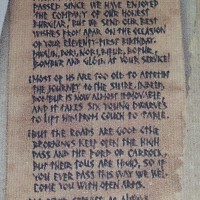 PASSED SINCE WE HAVE ENJOYED
THE COMPANY OF OUR HONEST
BURGLAR, BUT WE SEND OUR BEST
WISHES FROM AFAR ON THE OCCASION
OF YOUR ELEVENTY-FIRST BIRTHDAY.
DWALIN, DORI, NORI, BIFUR, BOFUR,
BOMBUR AND GLOIN, AT YOUR SERVICE!
MOST OF US ARE TOO OLD TO ATTEMPT
THE JOURNEY TO THE SHIRE, DARED,
BOMBUR IS NOW ALMOST IMMOVABLE,
AND IT TAKES SIX YOUNG DWARVES
TO LIFT HIM FROM COUCH TO TABLE.
BUT THE ROADS ARE GOOD (THE
BEORNINGS KEEP OPEN THE HIGH
PASS AND THE FORD OF CARROCK,
BUT THEIR TOLLS ARE HIGH), SO IF
YOU EVER PASS THIS WAY WE WEL-
COME YOU WITH OPEN ARMS.